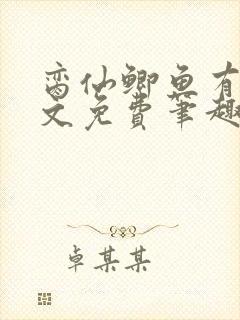 窩仙鲫鱼有
文免费笔趣
卓某某